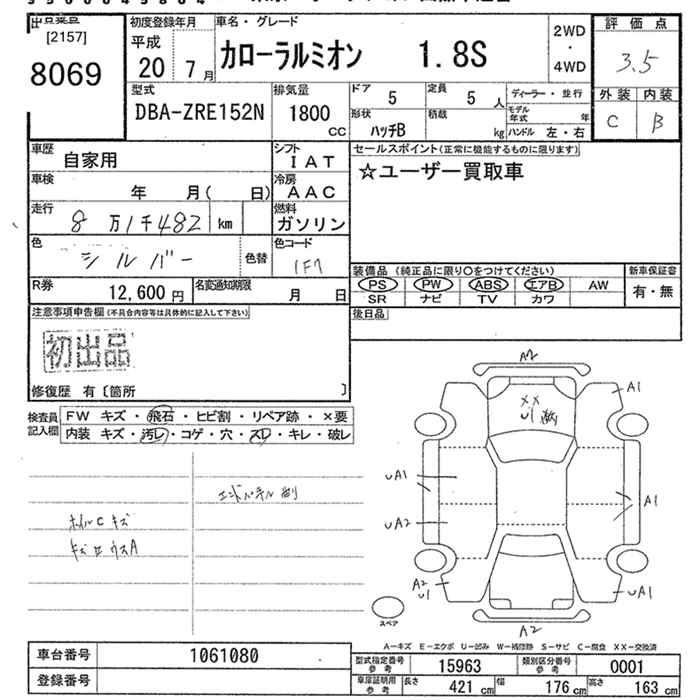 [2157]
8069
初度登録年月
平成
20 7月
車名・グレード
カローラルミオン 1.8S
2WD
・
4WD
評価点
3.5
外装 内装
C B
型式
DBA-ZRE152N
排気量
1800
CC
ドア 5
定員 5人
形状 ハッチB
積載 kg
ディーラー・並行
モデル年式 年
ハンドル 左・右
車歴 自家用
シフト
IAT
車検 年 月( 日)
冷房
AAC
走行 8万1千482 km
燃料
ガソリン
色 シルバー
色替
色コード
1F7
R券 12,600円
名変通知期限 月 日
セールスポイント(正常に機能するものに限ります)
☆ユーザー買取車
装備品(純正品に限り○をつけてください)
PS PW ABS エアB AW
SR ナビ TV カワ
新車保証書
有・無
後日品
注意事項申告欄(不具合内容等は具体的に記入して下さい)
初出品
修復歴 有〔箇所 〕
検査員記入欄
FW キズ・飛石・ヒビ割・リペア跡・×要
内装 キズ・汚レ・コゲ・穴・スレ・キレ・破レ
エンドパネル
ホイルCキズ
A2
A1
XX
U1
UA1
UA2
A1
A2
U1
UA1
A2
スペア
A-キズ E-エクボ U-凹み W-補修跡 S-サビ C-腐食 XX-交換済
車台番号 1061080
登録番号
型式指定番号 参考 15963
類別区分番号 参考 0001
車庫証明用 参考 長さ 421cm 幅 176cm 高さ 163cm